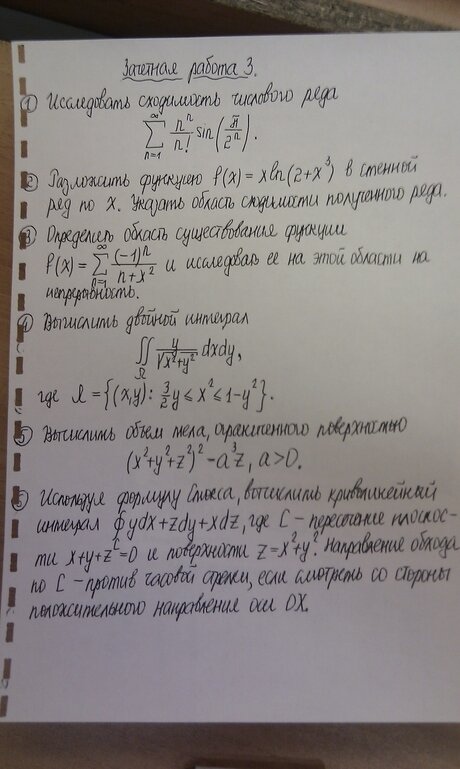 Зачетная работа 3.
① Исследовать сходимость числового ряда
∑_{n=1}^{∞} n^n/n! sin(π/2^n).
② Разложить функцию f(x) = x ln(2+x³) в степенной
ряд по x. Указать область сходимости полученного ряда.
③ Определить область существования функции
f(x) = ∑_{n=1}^{∞} (-1)^n/(n+x²) и исследовать ее на этой области на
непрерывность.
④ Вычислить двойной интеграл
∬_Ω y/√(x²+y²) dxdy,
где Ω = {(x,y): 3/2 y ≤ x² ≤ 1-y²}.
⑤ Вычислить объем тела, ограниченного поверхностью
(x²+y²+z²)² = a³z, a>0.
⑥ Используя формулу Стокса, вычислить криволинейный
интеграл ∮_L ydx+zdy+xdz, где L - пересечение плоскос-
ти x+y+z=0 и поверхности z=x²+y². Направление обхода
по L - против часовой стрелки, если смотреть со стороны
положительного направления оси OX.